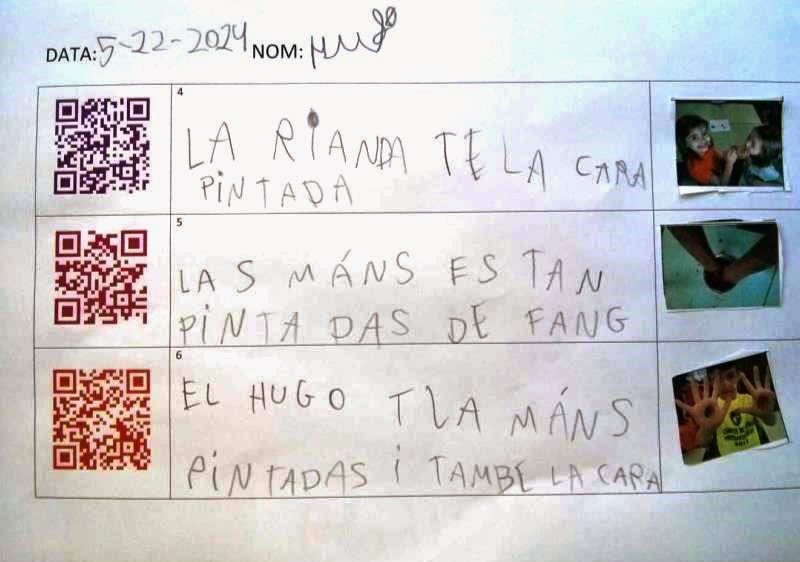 DATA: 5-22-2024 NOM: Hugo
4
LA RIANDA TE LA CARA
PINTADA
5
LAS MÁNS ESTAN
PINTADAS DE FANG
6
EL HUGO TLA MÁNS
PINTADAS i TAMBE LA CARA